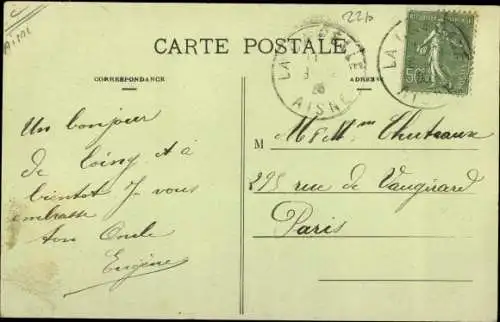 Aisne
22p
CARTE POSTALE
CORRESPONDANCE
ADRESSE
AISNE
50
Un bonjour
de Coincy et à
bientôt Je vous
embrasse
ton Oncle
Eugène
M r et M me
295 rue de Vaugirard
Paris